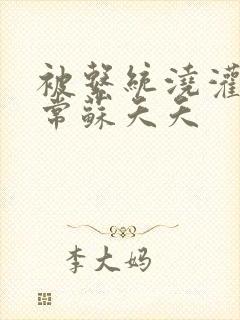 被繫統澆灌
常蘇夭夭
李大妈